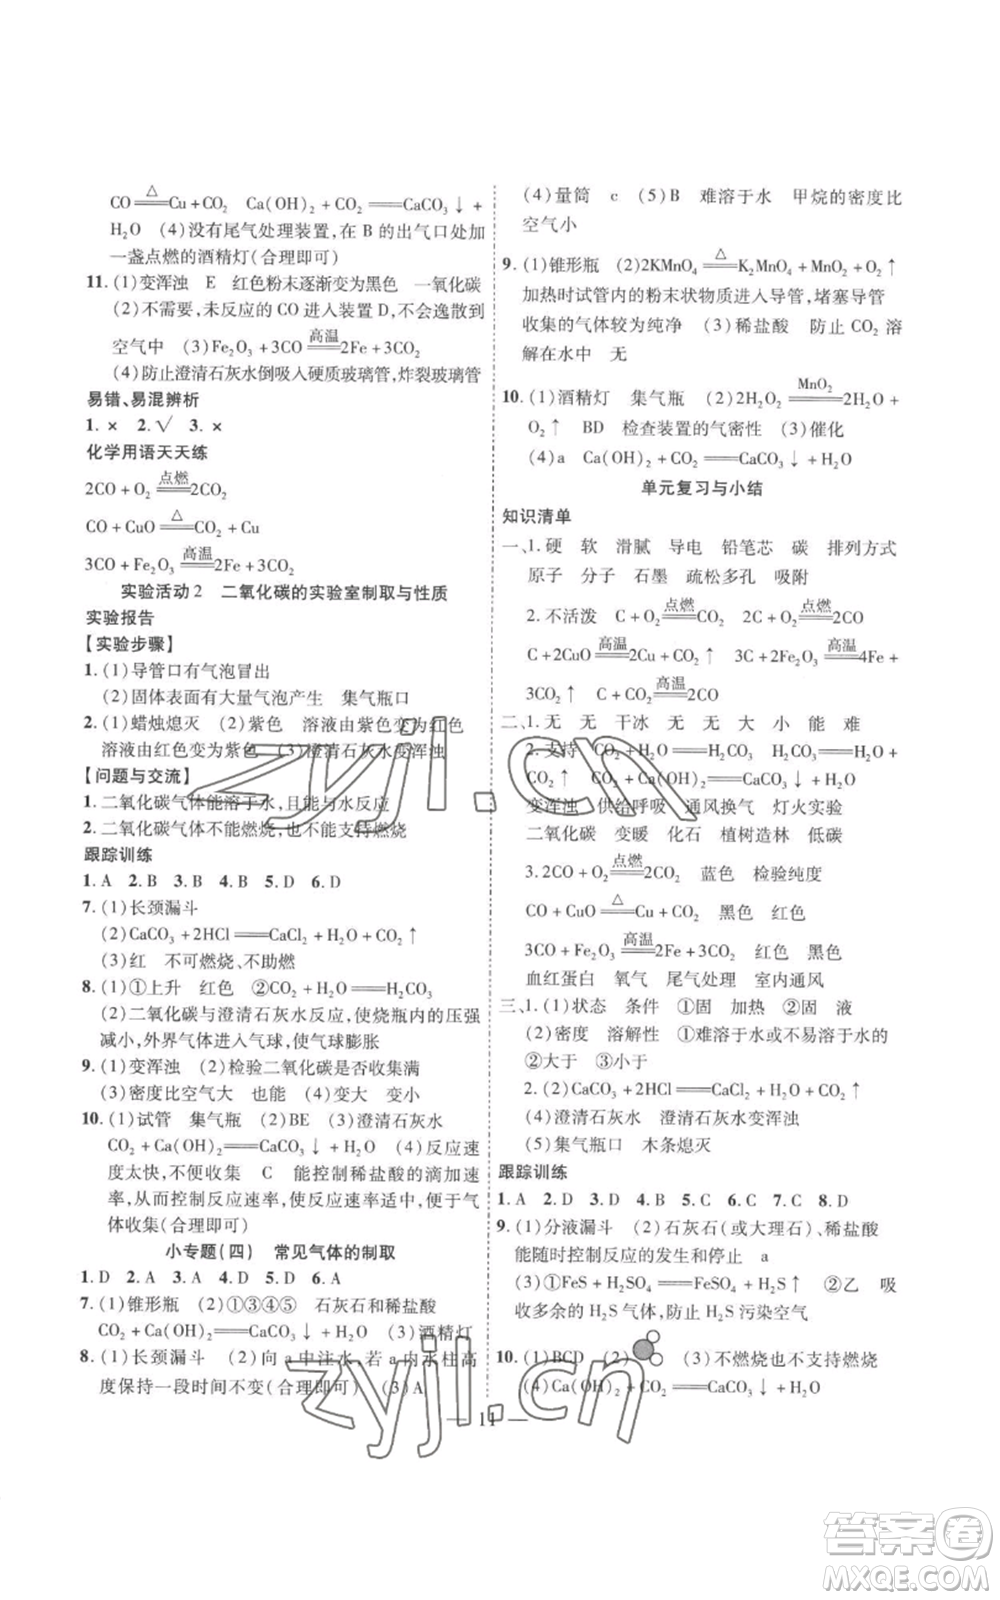 CO══(△)Cu + CO₂  Ca(OH)₂ + CO₂══CaCO₃↓ +
H₂O  (4)没有尾气处理装置,在 B 的出气口处加
一盏点燃的酒精灯(合理即可)
11. (1)变浑浊  E  红色粉末逐渐变为黑色  一氧化碳
(2)不需要,未反应的 CO 进入装置 D,不会逸散到
空气中  (3)Fe₂O₃ + 3CO══(高温)2Fe + 3CO₂
(4)防止澄清石灰水倒吸入硬质玻璃管,炸裂玻璃管
易错、易混辨析
1. ×  2. √  3. ×
化学用语天天练
2CO + O₂══(点燃)2CO₂
CO + CuO══(△)CO₂ + Cu
3CO + Fe₂O₃══(高温)2Fe + 3CO₂
实验活动 2  二氧化碳的实验室制取与性质
实验报告
【实验步骤】
1. (1)导管口有气泡冒出
(2)固体表面有大量气泡产生  集气瓶口
2. (1)蜡烛熄灭  (2)紫色  溶液由紫色变为红色
溶液由红色变为紫色  (3)澄清石灰水变浑浊
【问题与交流】
1. 二氧化碳气体能溶于水,且能与水反应
2. 二氧化碳气体不能燃烧,也不能支持燃烧
跟踪训练
1. A  2. B  3. B  4. B  5. D  6. D
7. (1)长颈漏斗
(2)CaCO₃ + 2HCl══CaCl₂ + H₂O + CO₂↑
(3)红  不可燃烧、不助燃
8. (1)①上升  红色  ②CO₂ + H₂O══H₂CO₃
(2)二氧化碳与澄清石灰水反应,使烧瓶内的压强
减小,外界气体进入气球,使气球膨胀
9. (1)变浑浊  (2)检验二氧化碳是否收集满
(3)密度比空气大  也能  (4)变大  变小
10. (1)试管  集气瓶  (2)BE  (3)澄清石灰水
CO₂ + Ca(OH)₂══CaCO₃↓ + H₂O  (4)反应速
度太快,不便收集  C  能控制稀盐酸的滴加速
率,从而控制反应速率,使反应速率适中,便于气
体收集(合理即可)
小专题(四)  常见气体的制取
1. D  2. A  3. A  4. D  5. D  6. A
7. (1)锥形瓶  (2)①③④⑤  石灰石和稀盐酸
CO₂ + Ca(OH)₂══CaCO₃↓ + H₂O  (3)酒精灯
8. (1)长颈漏斗  (2)向 a 中注水,若 a 内水柱高
度保持一段时间不变(合理即可)  (3)A
(4)量筒  c  (5)B  难溶于水  甲烷的密度比
空气小
9. (1)锥形瓶  (2)2KMnO₄══(△)K₂MnO₄ + MnO₂ + O₂↑
加热时试管内的粉末状物质进入导管,堵塞导管
收集的气体较为纯净  (3)稀盐酸  防止 CO₂ 溶
解在水中  无
10. (1)酒精灯  集气瓶  (2)2H₂O₂══(MnO₂)2H₂O +
O₂↑  BD  检查装置的气密性  (3)催化
(4)a  Ca(OH)₂ + CO₂══CaCO₃↓ + H₂O
单元复习与小结
知识清单
一、1. 硬  软  滑腻  导电  铅笔芯  碳  排列方式
原子  分子  石墨  疏松多孔  吸附
2. 不活泼  C + O₂══(点燃)CO₂  2C + O₂══(点燃)2CO
C + 2CuO══(高温)2Cu + CO₂↑  3C + 2Fe₂O₃══(高温)4Fe +
3CO₂↑  C + CO₂══(高温)2CO
二、1. 无  无  干冰  无  无  大  小  能  难
2. 支持  CO₂ + H₂O══H₂CO₃  H₂CO₃══H₂O +
CO₂↑  CO₂ + Ca(OH)₂══CaCO₃↓ + H₂O
变浑浊  供给呼吸  通风换气  灯火实验
二氧化碳  变暖  化石  植树造林  低碳
3. 2CO + O₂══(点燃)2CO₂  蓝色  检验纯度
CO + CuO══(△)Cu + CO₂  黑色  红色
3CO + Fe₂O₃══(高温)2Fe + 3CO₂  红色  黑色
血红蛋白  氧气  尾气处理  室内通风
三、1. (1)状态  条件  ①固  加热  ②固  液
(2)密度  溶解性  ①难溶于水或不易溶于水的
②大于  ③小于
2. (2)CaCO₃ + 2HCl══CaCl₂ + H₂O + CO₂↑
(4)澄清石灰水  澄清石灰水变浑浊
(5)集气瓶口  木条熄灭
跟踪训练
1. A  2. D  3. D  4. B  5. C  6. C  7. C  8. D
9. (1)分液漏斗  (2)石灰石(或大理石)、稀盐酸
能随时控制反应的发生和停止  a
(3)①FeS + H₂SO₄══FeSO₄ + H₂S↑  ②乙  吸
收多余的 H₂S 气体,防止 H₂S 污染空气
10. (1)BCD  (2)  (3)不燃烧也不支持燃烧
(4)Ca(OH)₂ + CO₂══CaCO₃↓ + H₂O
— 11 —
zyjl.cn
zyjl.cn
答案圈
MXQE.COM